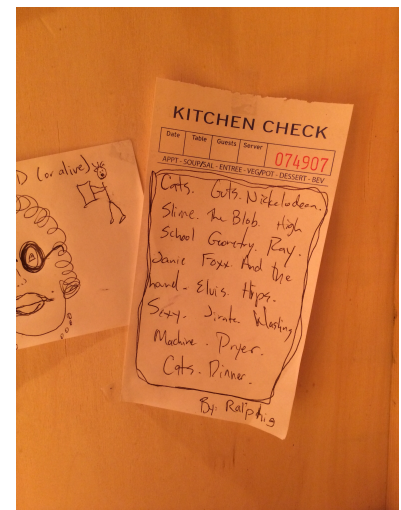 D (or alive)
KITCHEN CHECK
Date Table Guests Server
074907
APPT - SOUP/SAL - ENTREE - VEG/POT - DESSERT - BEV
Cats. Guts. Nickelodeon.
Slime. The Blob. High
School Geometry. Ray.
Jamie Foxx. And the
hound. Elvis. Hips.
Sexy. Washing
Machine. Dryer.
Cats. Dinner.
By: Ralphie